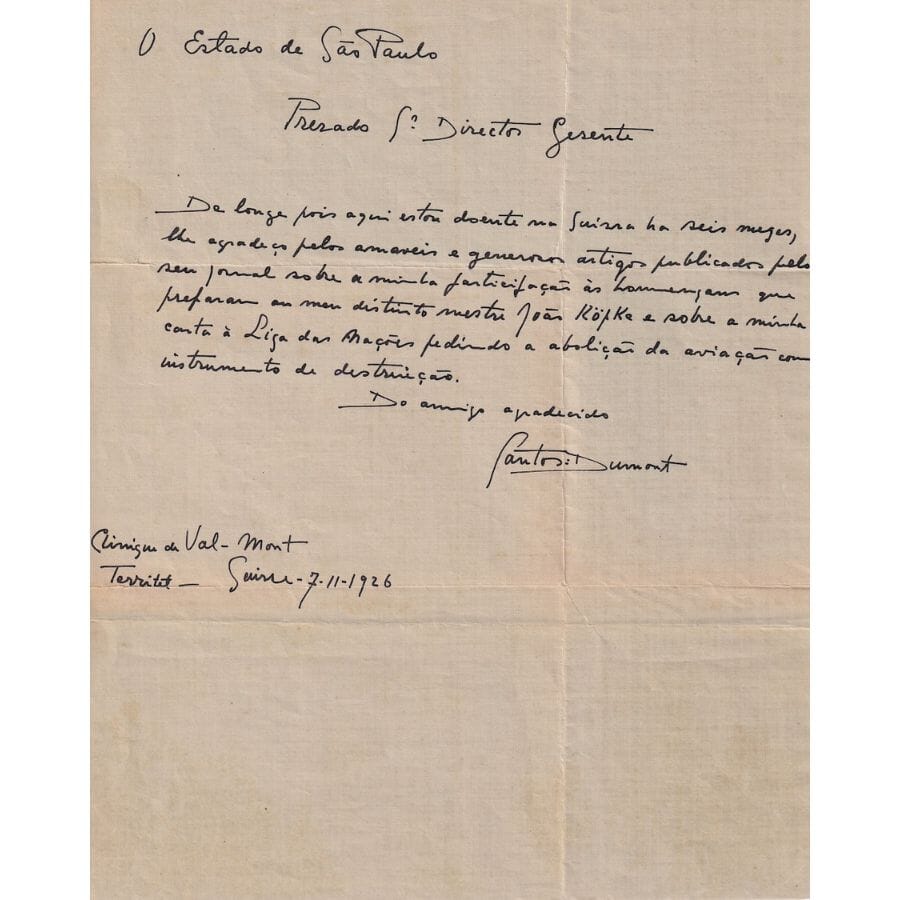 O Estado de São Paulo
Prezado Sr. Director Gerente
De longe pois aqui estou doente na Suissa ha seis mezes,
lhe agradeço pelos amaveis e generosos artigos publicados pelo
seu jornal sobre a minha participação às homenagens que
preparam ao meu distincto mestre João Köpke e sobre a minha
carta à Liga das Nações pedindo a abolição da aviação como
instrumento de destruição.
Do amigo agradecido
Santos=Dumont
Clinique de Val-Mont
Territet — Suisse - 7-11-1926